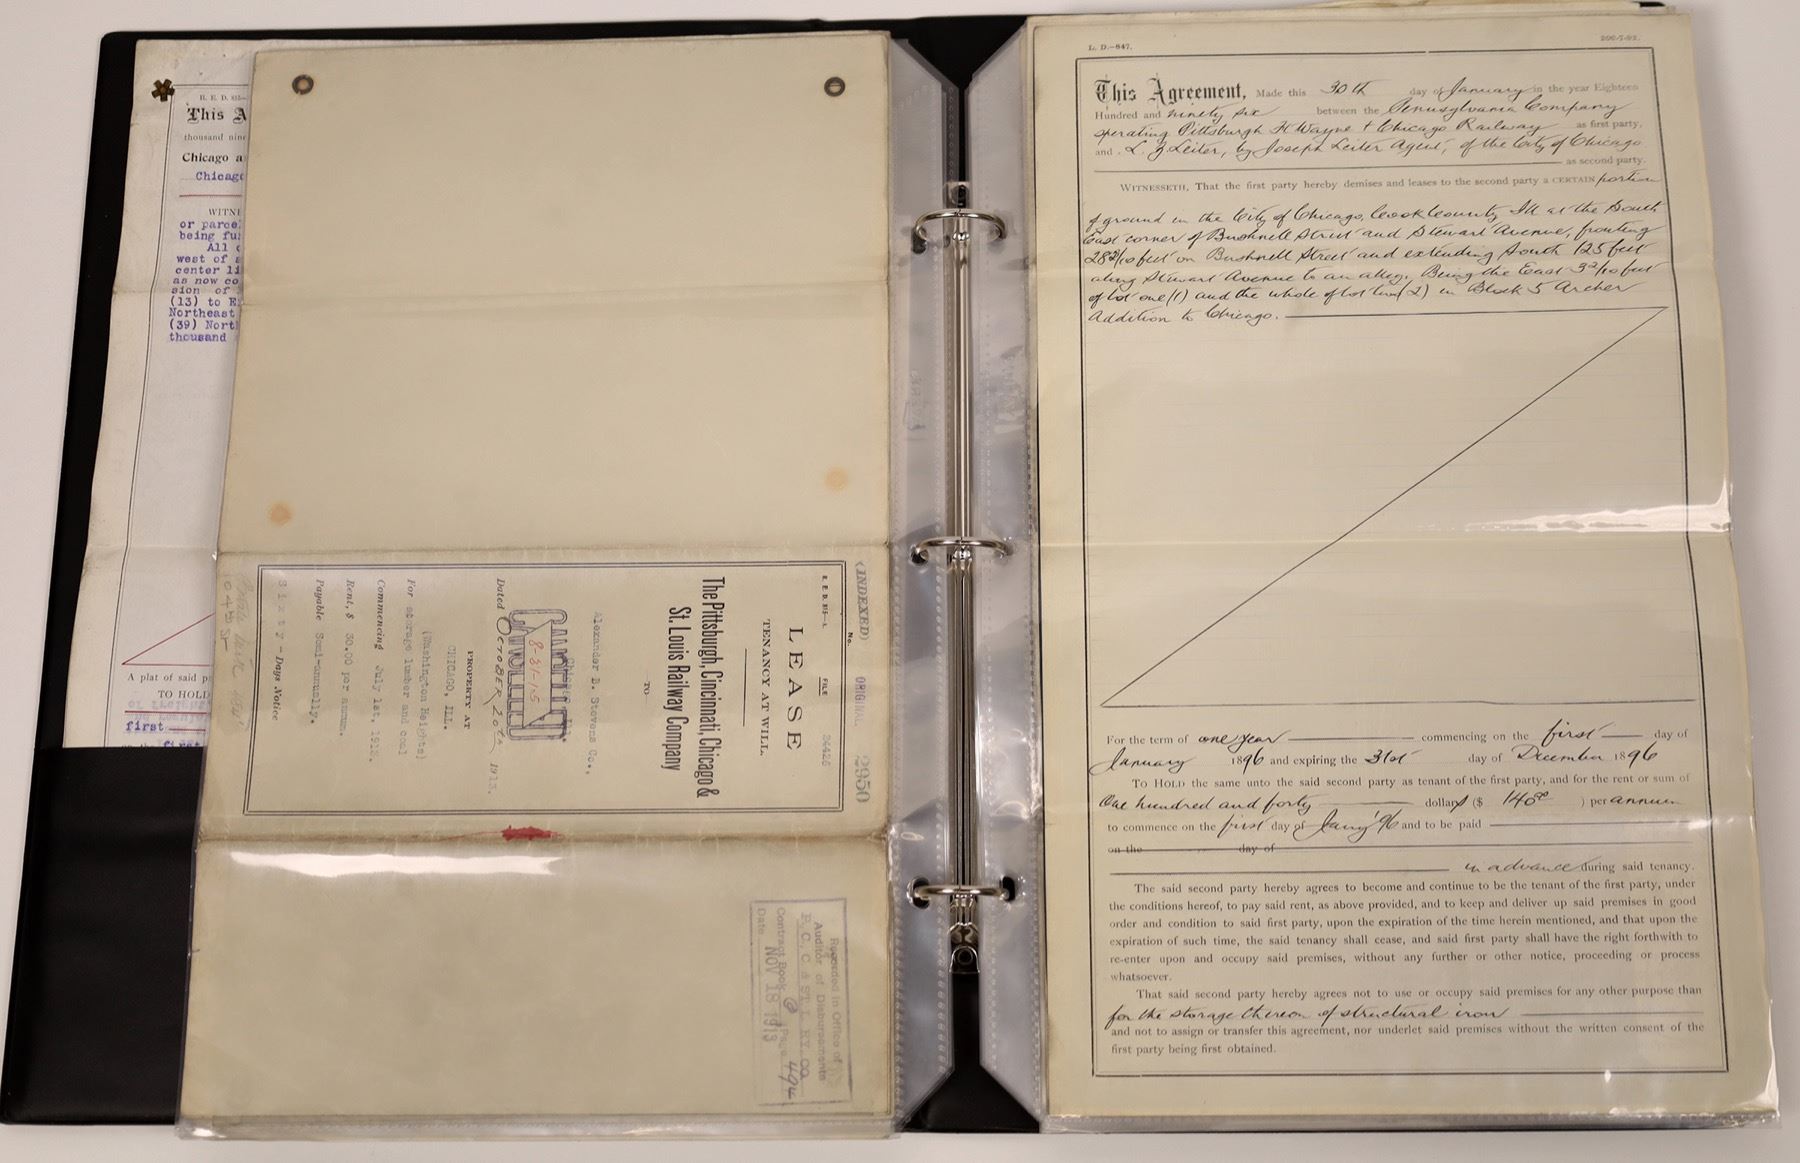 R. E. D. 815—
This A
thousand nine
Chicago a
Chicago
WITNE
or parce
being fu
All
west of
center li
as now co
sion of
(13) to E
Northeast
(39) Nort
thousand
A plat of said p
TO HOLD
first
first
(INDEXED) ORIGINAL 2950
R. E. D. 815—A. No. FILE 24426
LEASE
TENANCY AT WILL.
The Pittsburgh, Cincinnati, Chicago &
St. Louis Railway Company
TO
Alexander B. Stevens Co.,
CANCELLED
8-31-15
Dated October 20th, 1913.
PROPERTY AT
CHICAGO, ILL.
(Washington Heights)
For storage lumber and coal
Commencing July 1st, 1913.
Rent, $ 30.00 per annum.
Payable Semi-annually.
Sixty - Days Notice
104th St
Recorded in Office of
Auditor of Disbursements
P., C., C. & ST. L. RY. CO.
Contract Book @ Page 494
Date NOV 18 1913
L. D.—647.
This Agreement, Made this 30th day of January in the year Eighteen
Hundred and ninety six between the Pennsylvania Company
operating Pittsburgh Ft Wayne & Chicago Railway as first party,
and L. Z. Leiter, by Joseph Leiter Agent, of the City of Chicago
as second party.
WITNESSETH, That the first party hereby demises and leases to the second party a CERTAIN portion
of ground in the City of Chicago, Cook County Ill at the South
East corner of Bushnell Street and Stewart Avenue, fronting
28 2/10 feet on Bushnell Street and extending South 125 feet
along Stewart Avenue to an alley. Being the East 3 2/10 feet
of lot one (1) and the whole of lot two (2) in Block 5 Archer
Addition to Chicago.
For the term of one year commencing on the first day of
January 1896 and expiring the 31st day of December 1896
TO HOLD the same unto the said second party as tenant of the first party, and for the rent or sum of
One hundred and forty dollars ($ 140 00 ) per annum
to commence on the first day of Jany '96 and to be paid
on the day of
in advance during said tenancy.
The said second party hereby agrees to become and continue to be the tenant of the first party, under
the conditions hereof, to pay said rent, as above provided, and to keep and deliver up said premises in good
order and condition to said first party, upon the expiration of the time herein mentioned, and that upon the
expiration of such time, the said tenancy shall cease, and said first party shall have the right forthwith to
re-enter upon and occupy said premises, without any further or other notice, proceeding or process
whatsoever.
That said second party hereby agrees not to use or occupy said premises for any other purpose than
for the storage thereon of structural iron
and not to assign or transfer this agreement, nor underlet said premises without the written consent of the
first party being first obtained.